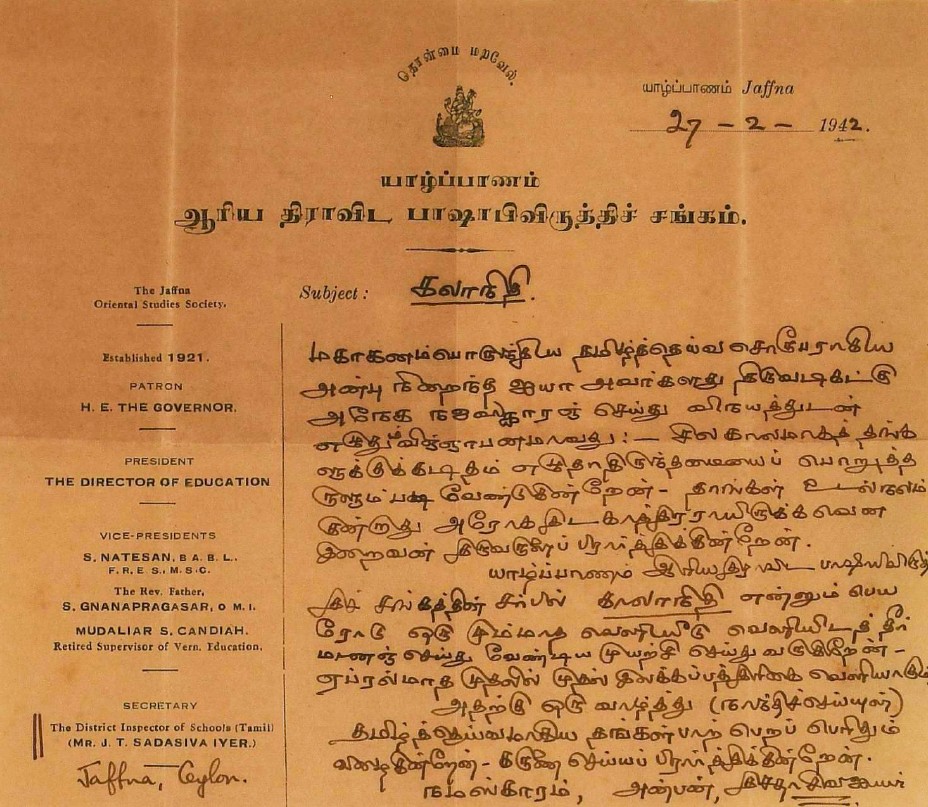 தொன்மை மறவேல்.
யாழ்ப்பாணம் Jaffna
27 - 2 - 1942.
யாழ்ப்பாணம்
ஆரிய திராவிட பாஷாபிவிருத்திச் சங்கம்.
The Jaffna
Oriental Studies Society.
Established 1921.
PATRON
H. E. THE GOVERNOR.
PRESIDENT
THE DIRECTOR OF EDUCATION
VICE-PRESIDENTS
S. NATESAN, B A. B L.,
F. R. E S., M. S. C.
The Rev. Father,
S. GNANAPRAGASAR, O M. I.
MUDALIAR S. CANDIAH.
Retired Supervisor of Vern. Education.
SECRETARY
The District Inspector of Schools (Tamil)
(MR. J. T. SADASIVA IYER.)
Jaffna, Ceylon.
Subject : கலாநிதி.
மகாகனம்பொருந்திய தமிழ்த்தெய்வ சொரூபராகிய
அன்பு நிறைந்த ஐயா அவர்களது திருவடிகட்கு
அநேக நமஸ்காரஞ் செய்து விநயத்துடன்
எழுதும் விஞ்ஞாபனமாவது : — சில காலமாகத் தங்க
ளுக்குக்கடிதம் எழுதாதிருந்தமையைப் பொறுத்த
ருளும்படி வேண்டுகின்றேன் - தாங்கள் உடல்நலம்
குன்றாது அரோக திடகாத்திரராயிருக்கவென
இறைவன் திருவருளைப் பிரார்த்திக்கின்றேன்.
யாழ்ப்பாணம் ஆரியதிராவிட பாஷாபிவிருத்
திச் சங்கத்தின் சார்பில் கலாநிதி என்னும் பெய
ரோடு ஒரு மும்மாத வெளியீடு வெளியிடத் தீர்
மானஞ் செய்து வேண்டிய முயற்சி செய்து வருகிறேன் -
ஏப்ரல்மாத முதலில் முதல் இலக்கப்பத்திரிகை வெளியாகும்
அதற்கு ஒரு வாழ்த்து (நாந்திச்செய்யுள்)
தமிழ்த்தெய்வமாகிய தங்கள்பாற் பெறப் பெரிதும்
விழைகின்றேன் - கருணை செய்யப் பிரார்த்திக்கின்றேன்.
நமஸ்காரம், அன்பன்,